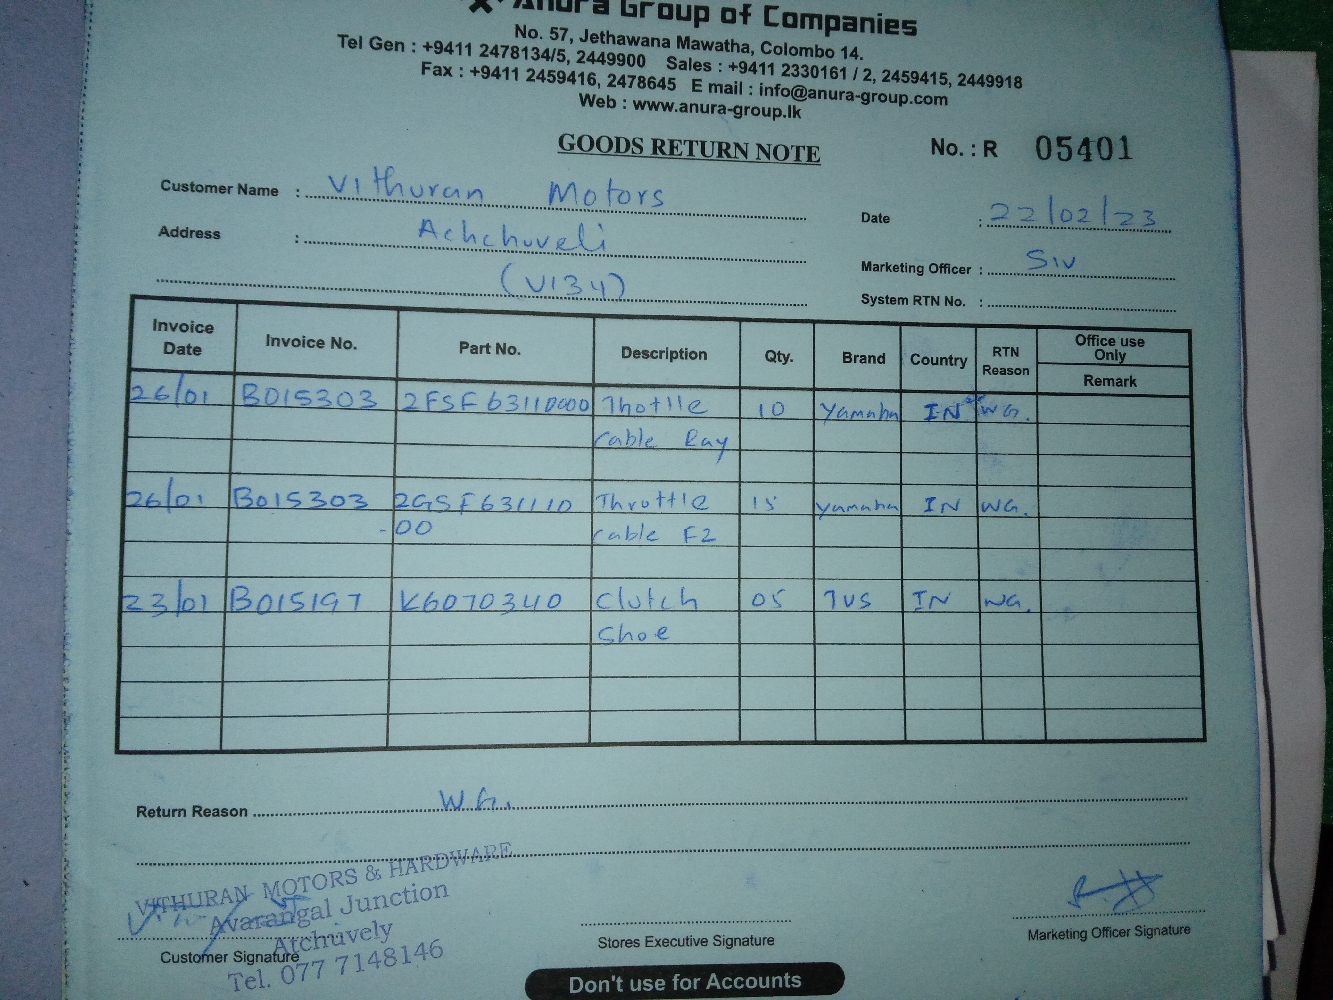 Anura Group of Companies
No. 57, Jethawana Mawatha, Colombo 14.
Tel Gen : +9411 2478134/5, 2449900 Sales : +9411 2330161 / 2, 2459415, 2449918
Fax : +9411 2459416, 2478645 E mail : info@anura-group.com
Web : www.anura-group.lk
GOODS RETURN NOTE No. : R 05401
Customer Name : Vithuran Motors
Date : 22/02/23
Address : Achchuveli
Marketing Officer : Siv
(V134)
System RTN No. :
Invoice Date Invoice No. Part No. Description Qty. Brand Country RTN Reason Office use Only
Remark
26/01 B015303 2FSF63110000 Thottle 10 Yamaha IN WG.
cable Ray
26/01 B015303 2GSF631110 Throttle 15 Yamaha IN WG.
-00 cable FZ
23/01 B015197 K6070340 Clutch 05 TVS IN WG.
Shoe
Return Reason W.G.
VITHURAN MOTORS & HARDWARE
Avarangal Junction
Atchuvely
Tel. 077 7148146
Customer Signature Stores Executive Signature Marketing Officer Signature
Don't use for Accounts